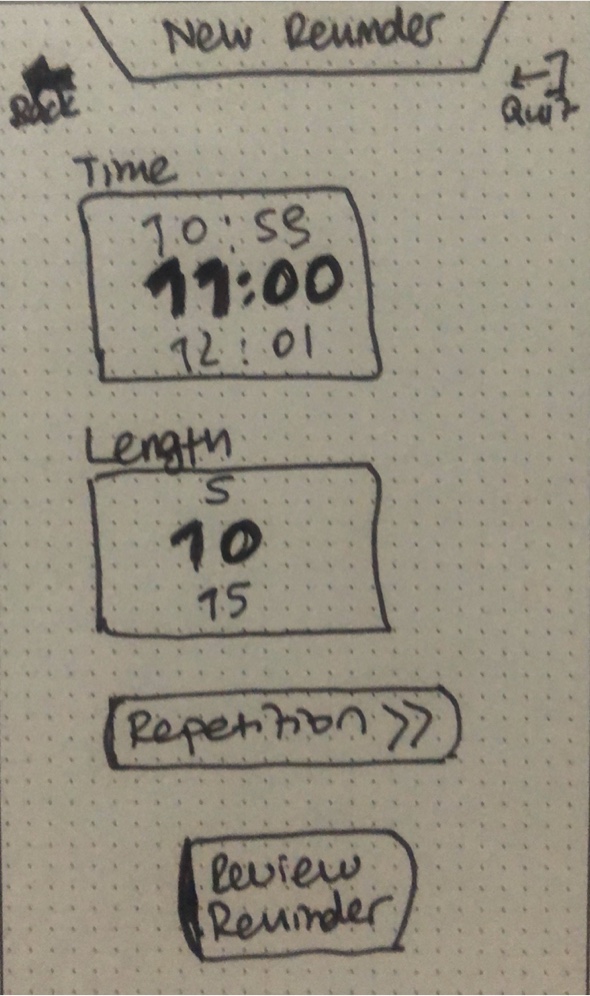 New Reminder
Back
Quit
Time
10:59
11:00
12:01
Length
5
10
15
Repetition >>
Review
Reminder